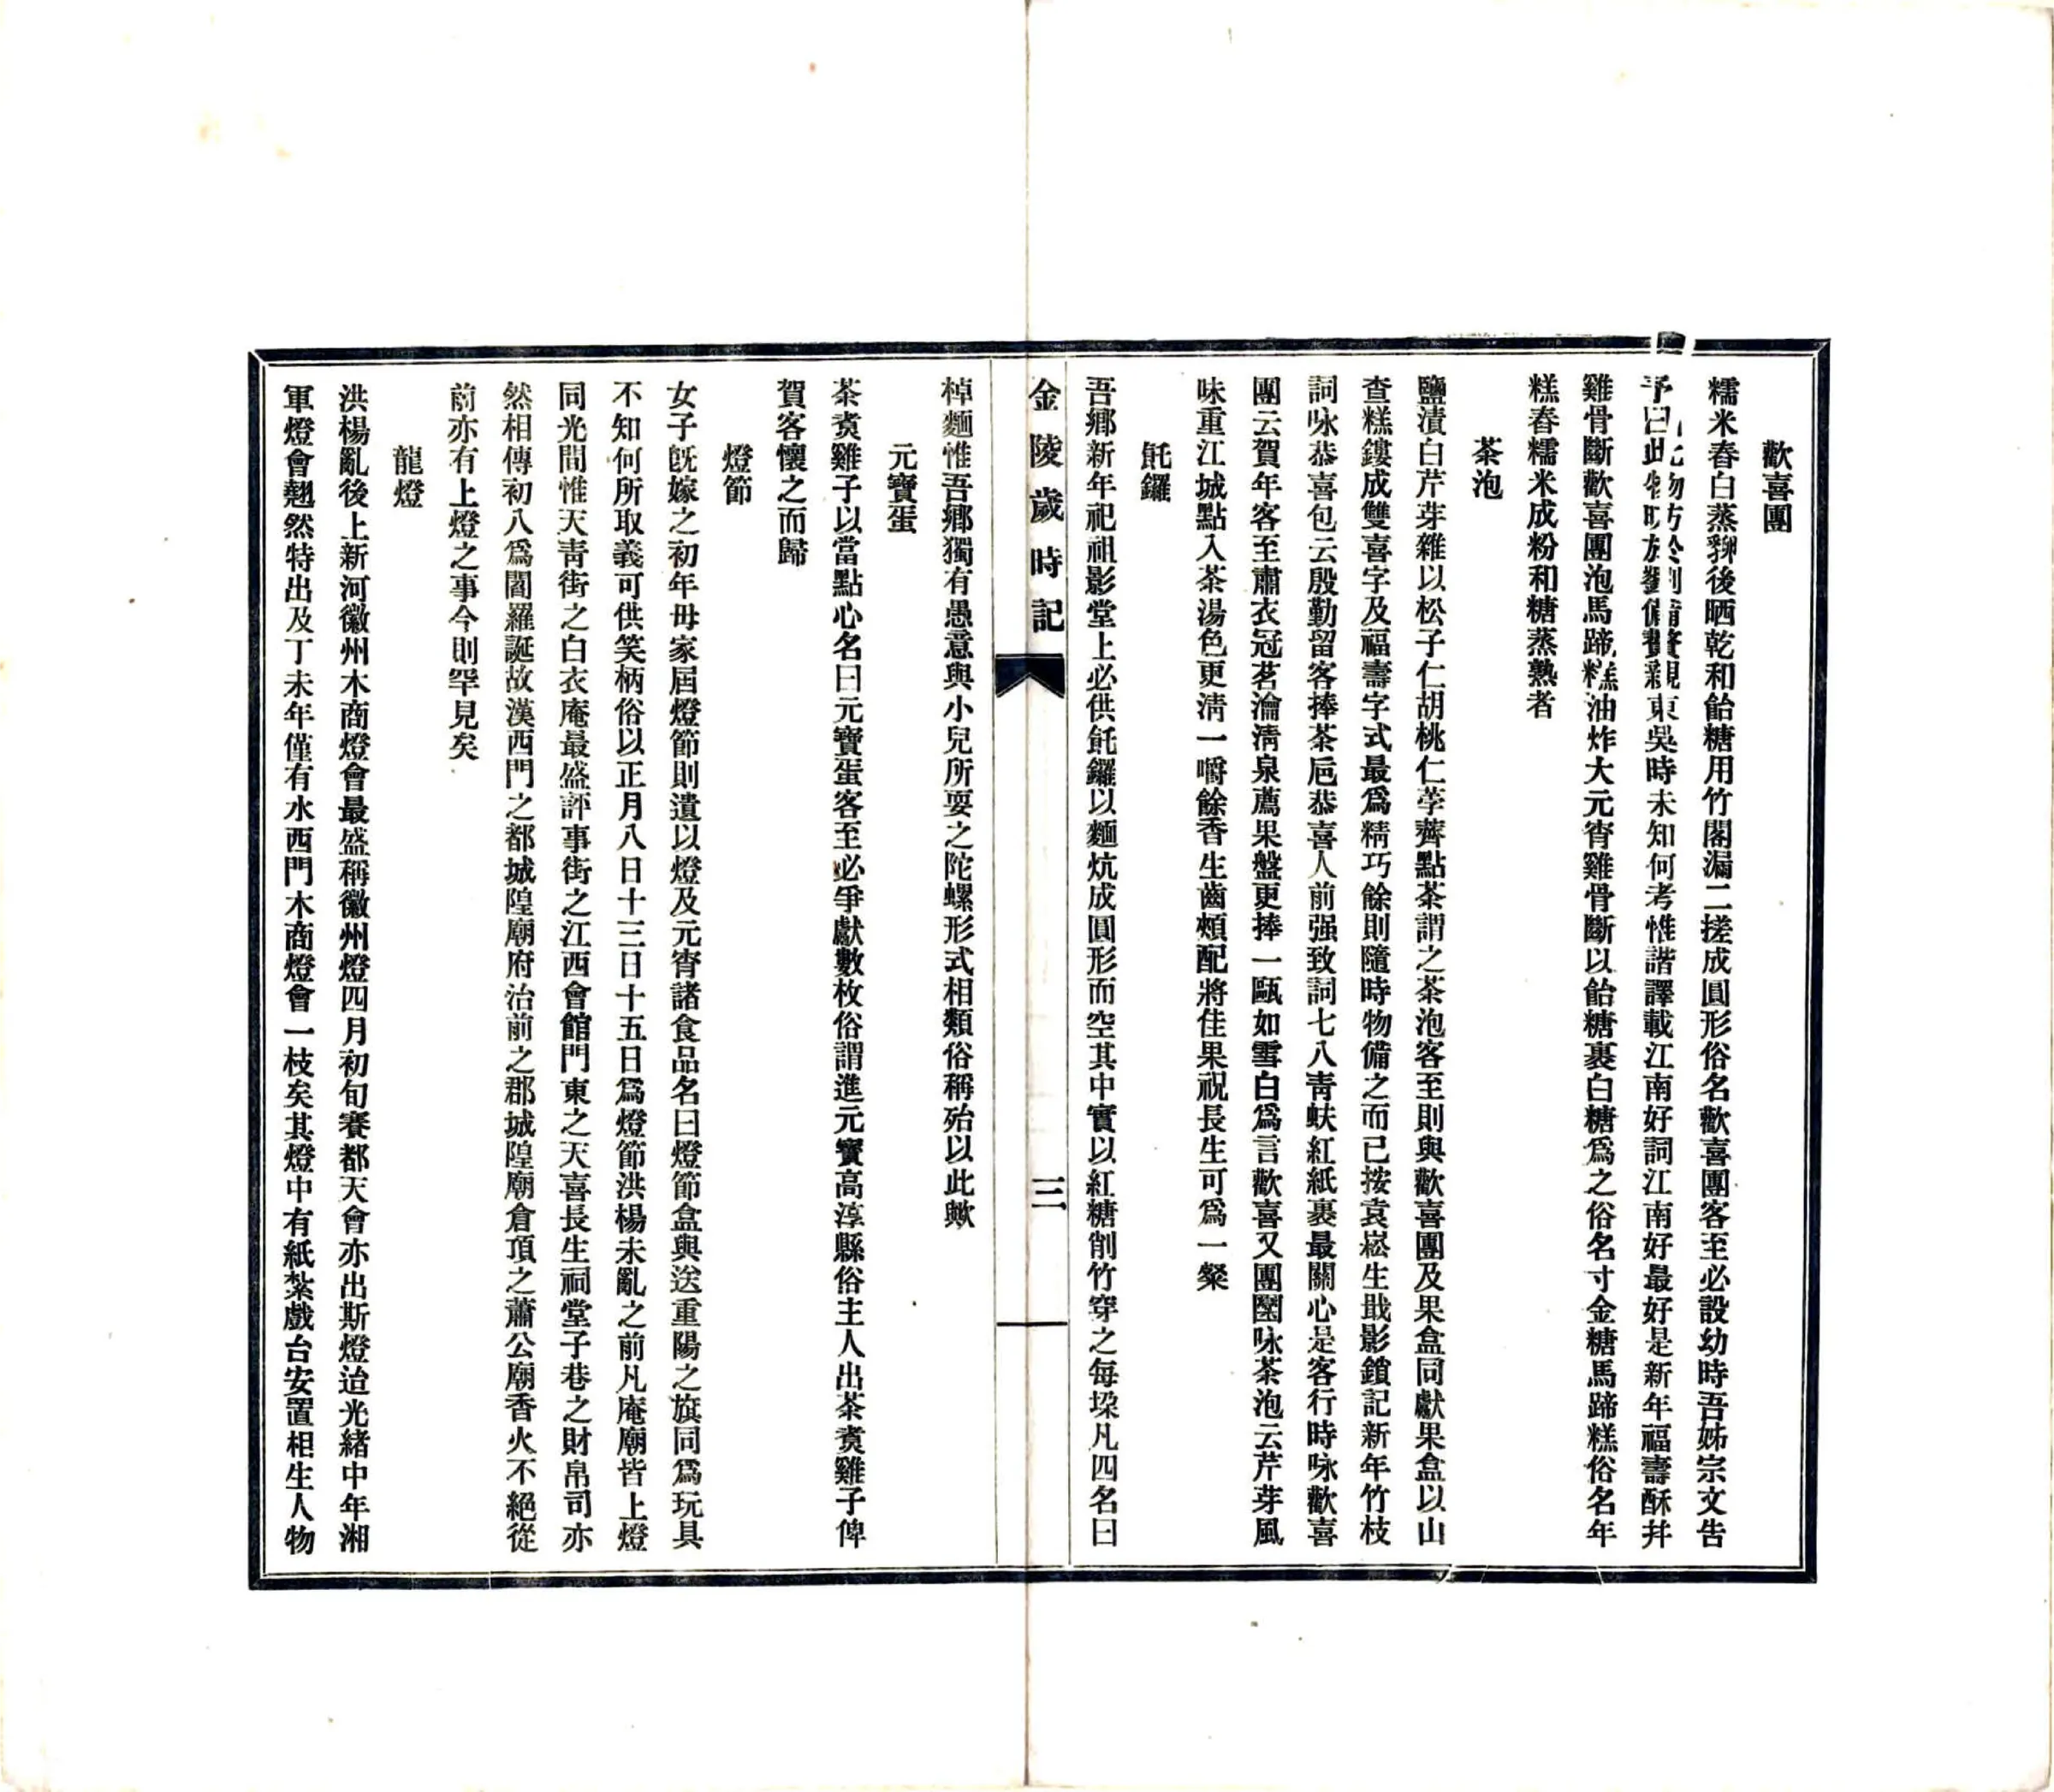 歡喜團
糯米舂白蒸後晒乾和飴糖用竹閣漏二搓成圓形俗名歡喜團客至必設幼時吾姊宗文告
予曰此物昉於劉備贅親東吳時未知何考惟諧譯載江南好詞江南好最好是新年福壽酥幷
雞骨斷歡喜團泡馬蹄糕油炸大元宵雞骨斷以飴糖裹白糖爲之俗名寸金糖馬蹄糕俗名年
糕舂糯米成粉和糖蒸熟者
茶泡
鹽漬白芹芽雜以松子仁胡桃仁荸薺點茶謂之茶泡客至則與歡喜團及果盒同獻果盒以山
查糕鏤成雙喜字及福壽字式最爲精巧餘則隨時物備之而已按袁崧生戢影鎖記新年竹枝
詞咏恭喜包云殷勤留客捧茶卮恭喜人前强致詞七八青蚨紅紙裹最關心是客行時咏歡喜
團云賀年客至肅衣冠茗瀹淸泉薦果盤更捧一甌如雪白爲言歡喜又團圞咏茶泡云芹芽風
味重江城點入茶湯色更淸一嚼餘香生齒頰配將佳果祝長生可爲一粲
飥鑼
吾鄕新年祀祖影堂上必供飥鑼以麵炕成圓形而空其中實以紅糖削竹穿之每垜凡四名曰
金陵歲時記 三
棹麵惟吾鄕獨有愚意與小兒所耍之陀螺形式相類俗稱殆以此歟
元寶蛋
茶煑雞子以當點心名曰元寶蛋客至必爭獻數枚俗謂進元寶高淳縣俗主人出茶煑雞子俾
賀客懷之而歸
燈節
女子旣嫁之初年毋家屆燈節則遺以燈及元宵諸食品名曰燈節盒與送重陽之旗同爲玩具
不知何所取義可供笑柄俗以正月八日十三日十五日爲燈節洪楊未亂之前凡庵廟皆上燈
同光間惟天靑街之白衣庵最盛評事街之江西會館門東之天喜長生祠堂子巷之財帛司亦
然相傳初八爲閻羅誕故漢西門之都城隍廟府治前之郡城隍廟倉頂之蕭公廟香火不絕從
前亦有上燈之事今則罕見矣
龍燈
洪楊亂後上新河徽州木商燈會最盛稱徽州燈四月初旬賽都天會亦出斯燈迨光緖中年湘
軍燈會翹然特出及丁未年僅有水西門木商燈會一枝矣其燈中有紙紮戲台安置相生人物